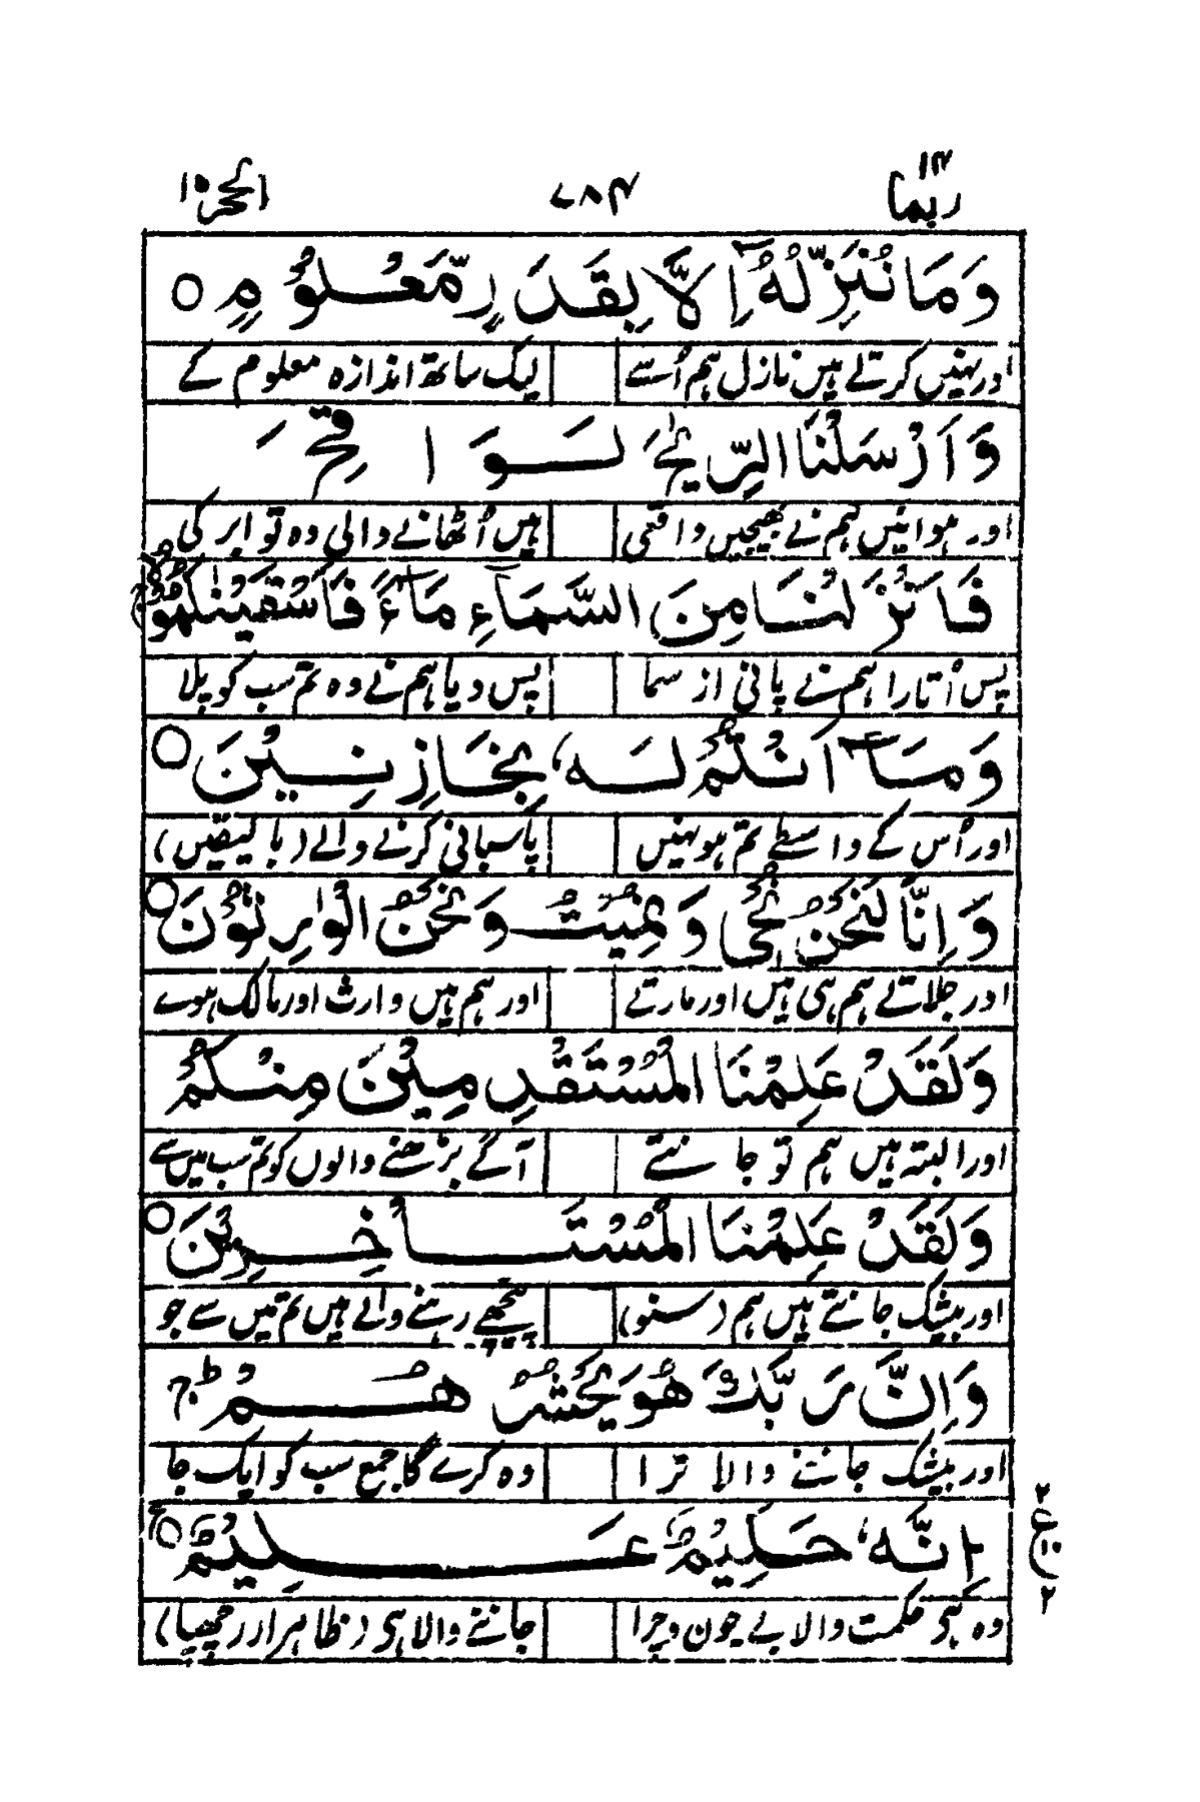 ربما ١٤ ٧٨٤ الحجر ١٥
وَمَا نُنَزِّلُهُٓ اِلَّا بِقَدَرٍ مَّعْلُوْمٍ ○
اور نہیں کرتے ہیں نازل ہم اُسے لیک ساتھ اندازہ معلوم کے
وَاَرْسَلْنَا الرِّيٰحَ لَوَاقِحَ
اور ہوائیں ہم نے بھیجیں واقعی ہیں اُٹھانے والی وہ تو ابر کی
فَاَنْزَلْنَا مِنَ السَّمَآءِ مَآءً فَاَسْقَيْنٰكُمُوْهُ ج
پس اُتارا ہم نے پانی از سما پس دیا ہم نے وہ تم سب کو پلا
وَمَآ اَنْتُمْ لَهٗ بِخَازِنِيْنَ ○
اور اُس کے واسطے تم ہو نہیں پاسبانی کرنے والے (بالیقیں)
وَاِنَّا لَنَحْنُ نُحْيٖ وَنُمِيْتُ وَنَحْنُ الْوٰرِثُوْنَ ○
اور جلاتے ہم ہی ہیں اور مارتے اور ہم ہیں وارث اور مالک ہوے
وَلَقَدْ عَلِمْنَا الْمُسْتَقْدِمِيْنَ مِنْكُمْ
اور البتہ ہیں ہم تو جانتے آگے بڑھنے والوں کو تم سب میں سے
وَلَقَدْ عَلِمْنَا الْمُسْتَاْخِرِيْنَ ○
اور بیشک جانتے ہیں ہم (سنو) پیچھے رہنے والے ہیں تم میں سے جو
وَاِنَّ رَبَّكَ هُوَ يَحْشُرُهُمْ ط
اور بیشک جاننے والا ترا وہ کرے گا جمع سب کو ایک جا
اِنَّهٗ حَكِيْمٌ عَلِيْمٌ ○ ع
وہ ہی حکمت والا بے چون و چرا جاننے والا ہی (ظاہر اور چھپا)
٢ ع ٢